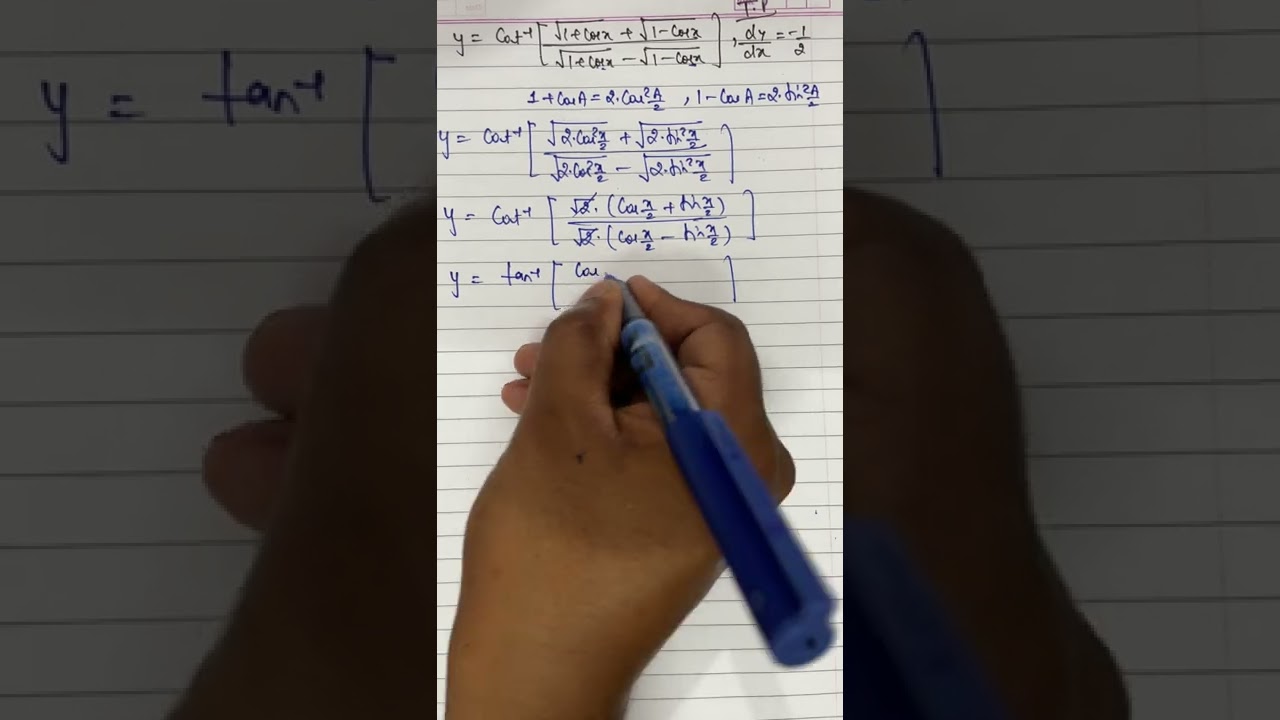 T.P
y = Cot⁻¹ [ (√1+Cosx + √1-Cosx) / (√1+Cosx - √1-Cosx) ] , dy/dx = -1/2
1 + CosA = 2·Cos²A/2 , 1 - CosA = 2·sin²A/2
y = Cot⁻¹ [ (√2·Cos²x/2 + √2·sin²x/2) / (√2·Cos²x/2 - √2·sin²x/2) ]
y = Cot⁻¹ [ √2·(Cosx/2 + sinx/2) / √2·(Cosx/2 - sinx/2) ]
y = tan⁻¹ [ Cos ]